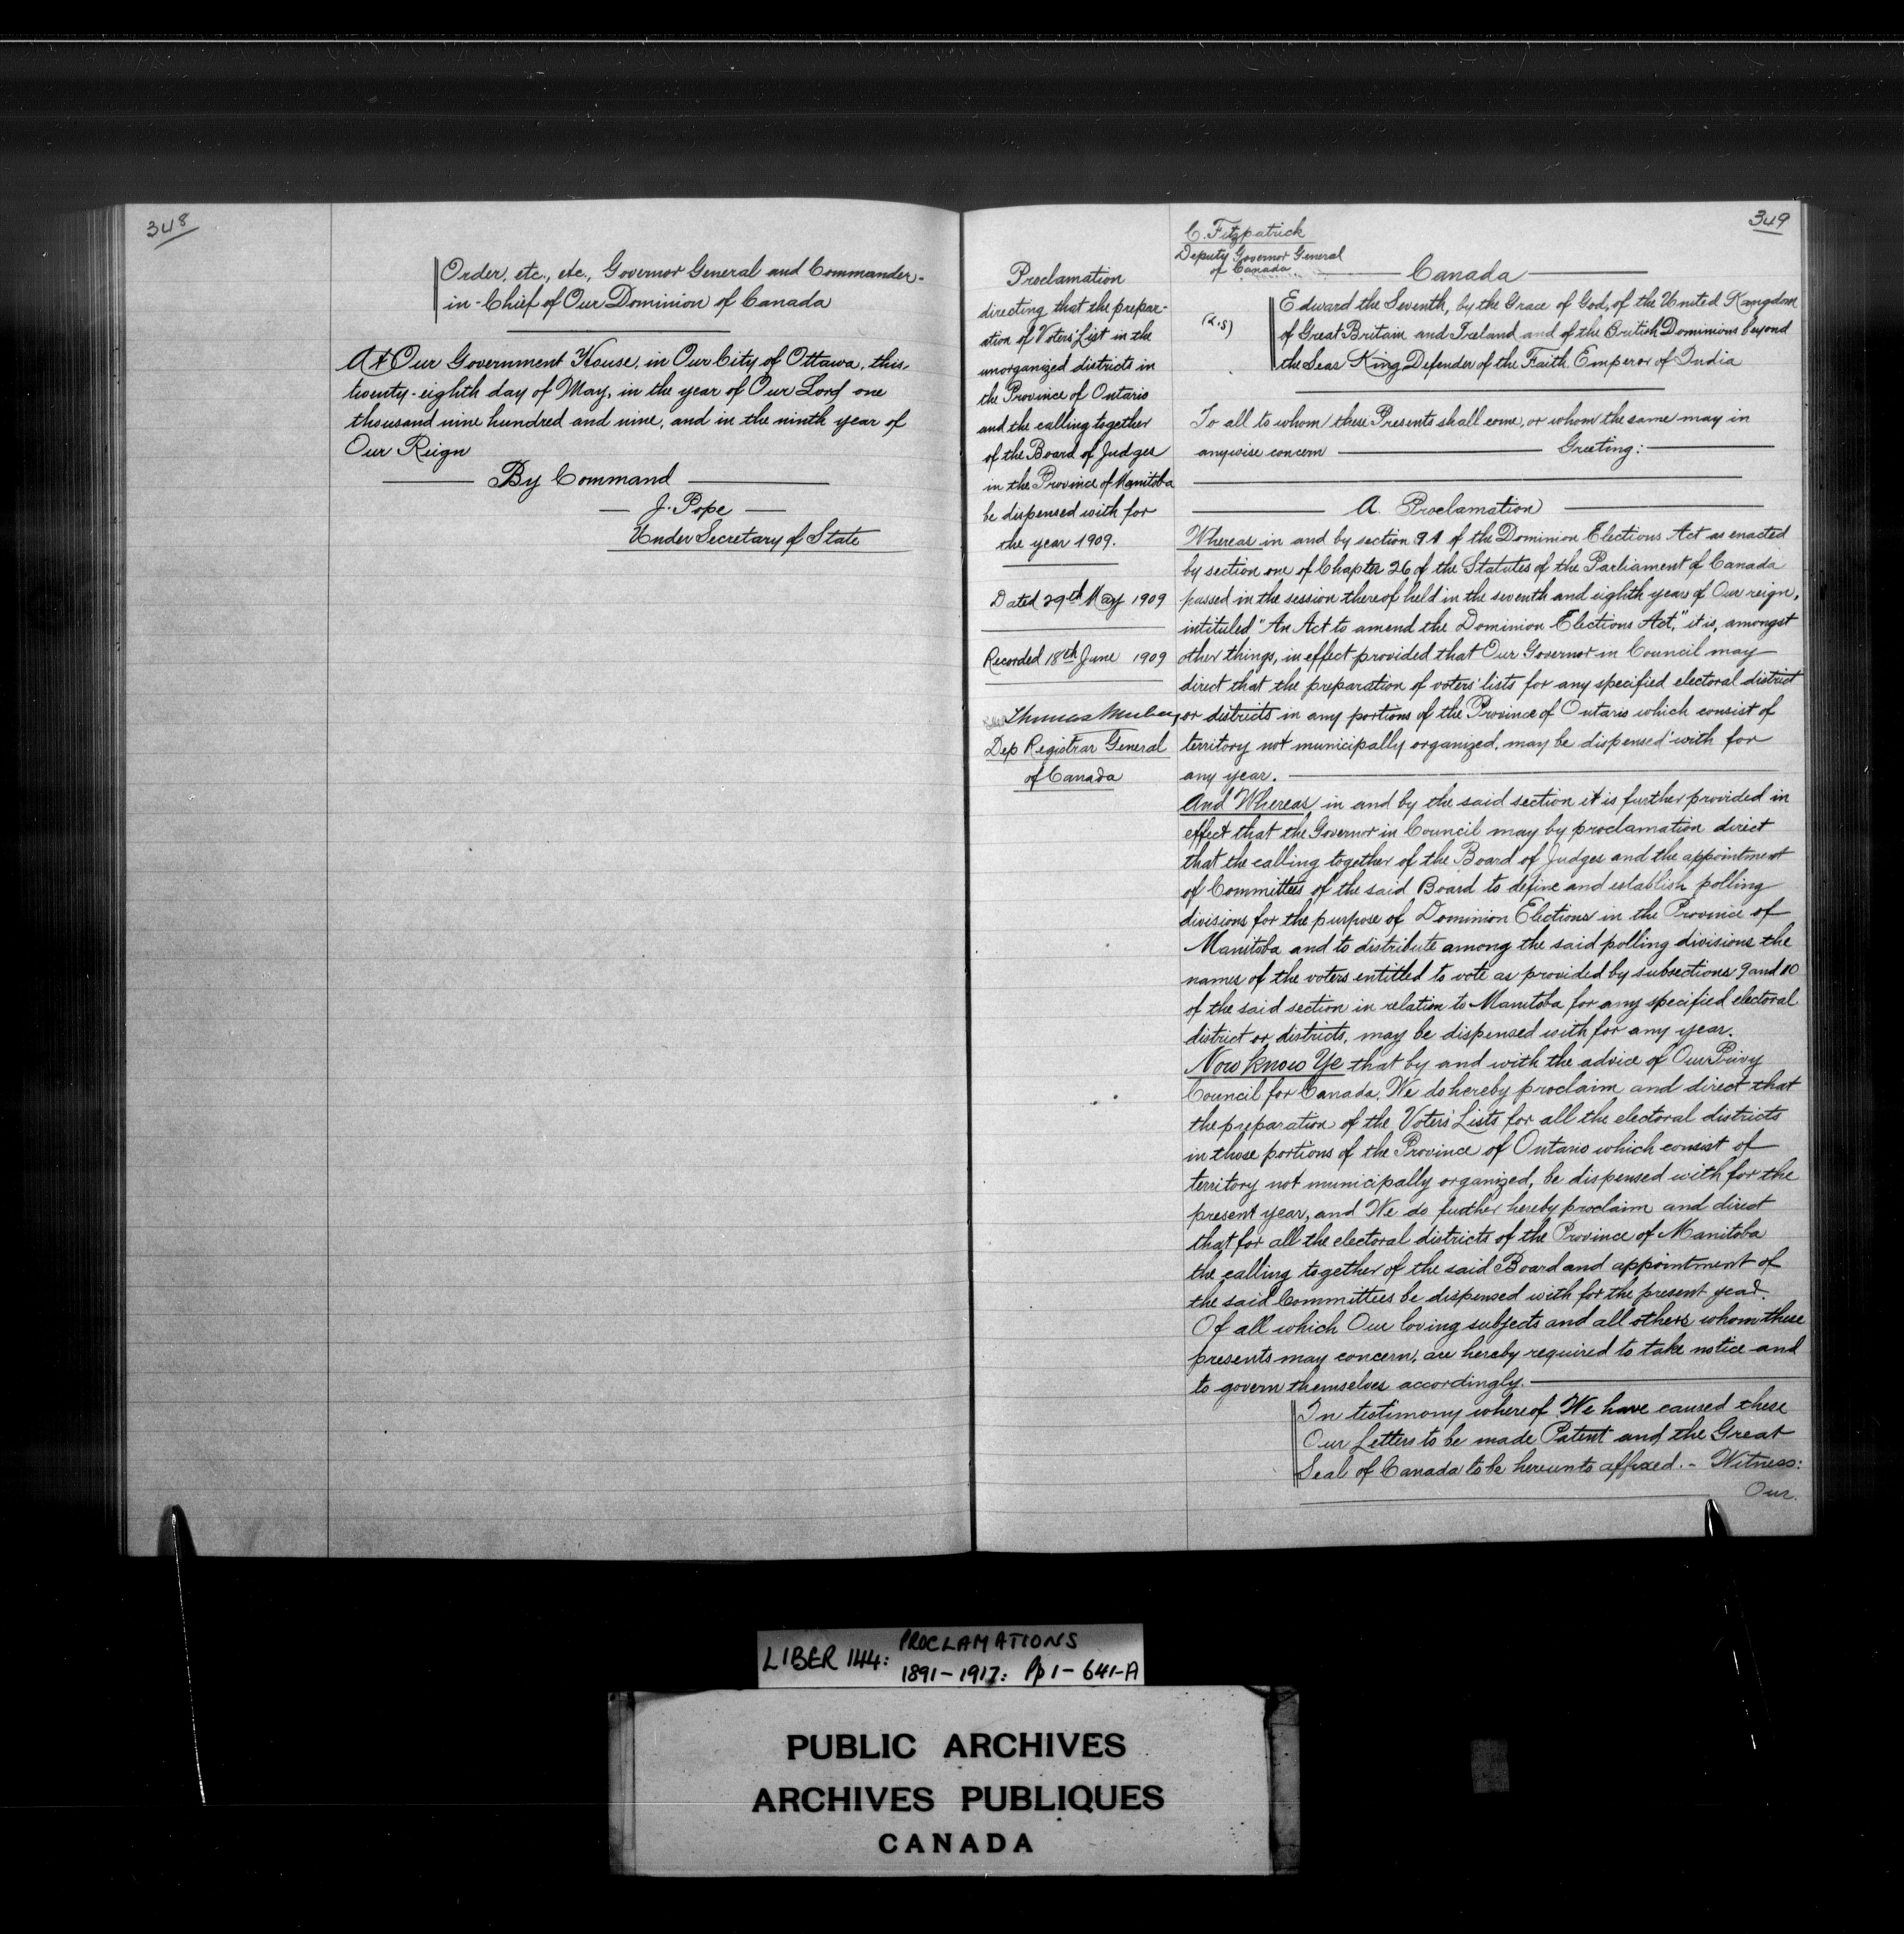 348
Order, etc., etc., Governor General and Commander-
in-Chief of Our Dominion of Canada
At Our Government House, in Our City of Ottawa, this,
twenty-eighth day of May, in the year of Our Lord one
thousand nine hundred and nine, and in the ninth year of
Our Reign
By Command
J. Pope
Under Secretary of State
349
C. Fitzpatrick
Deputy Governor General
of Canada
Canada
Proclamation
directing that the prepar-
ation of Voters' List in the
unorganized districts in
the Province of Ontario
and the calling together
of the Board of Judges
in the Province of Manitoba
be dispensed with for
the year 1909.
Dated 29th May 1909
Recorded 18th June 1909
Thomas
Dep Registrar General
of Canada
(L.S)
Edward the Seventh, by the Grace of God, of the United Kangdom
of Great Britain and Ireland and of the British Dominions beyond
the Seas King Defender of the Faith Emperor of India
To all to whom these Presents shall come, or whom the same may in
anywise concern Greeting:
A. Proclamation
Whereas in and by section 91 of the Dominion Elections Act as enacted
by section one of Chapter 26 of the Statutes of the Parliament of Canada
passed in the session thereof held in the seventh and eighth years of Our reign,
intituled "An Act to amend the Dominion Elections Act," it is, amongst
other things, in effect provided that Our Governor in Council may
direct that the preparation of voters' lists for any specified electoral district
or districts in any portions of the Province of Ontario which consist of
territory not municipally organized, may be dispensed with for
any year.
And Whereas in and by the said section it is further provided in
effect that the Governor in Council may by proclamation direct
that the calling together of the Board of Judges and the appointment
of Committees of the said Board to define and establish polling
divisions for the purpose of Dominion Elections in the Province of
Manitoba and to distribute among the said polling divisions the
names of the voters entitled to vote as provided by subsections 9 and 10
of the said section in relation to Manitoba for any specified electoral
district or districts, may be dispensed with for any year.
Now Know Ye that by and with the advice of Our Privy
Council for Canada, We do hereby proclaim and direct that
the preparation of the Voters' Lists for all the electoral districts
in those portions of the Province of Ontario which consist of
territory not municipally organized, be dispensed with for the
present year, and We do further hereby proclaim and direct
that for all the electoral districts of the Province of Manitoba
the calling together of the said Board and appointment of
the said Committees be dispensed with for the present year.
Of all which Our loving subjects and all others whom these
presents may concern, are hereby required to take notice and
to govern themselves accordingly.
In testimony whereof We have caused these
Our Letters to be made Patent and the Great
Seal of Canada to be hereunto affixed. - Witness:
Our.
LIBER 144: PROCLAMATIONS
1891-1917: Pp 1-641-A
PUBLIC ARCHIVES
ARCHIVES PUBLIQUES
CANADA